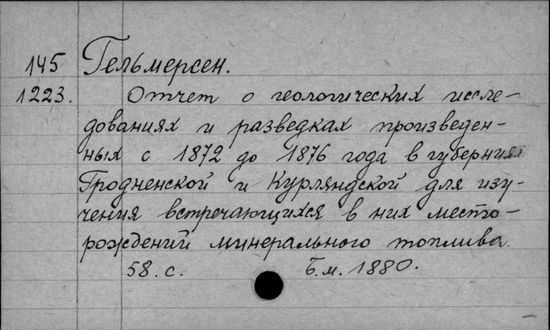 145 Гельмерсен.
1223. Отчет о геологических иссле-
дованиях и разведках произведен-
ных с 1872 до 1876 года в губерниях
Гродненской и Курляндской для изу-
чения встречающихся в них место-
рождений минерального топлива
58. с. Б.м. 1880.